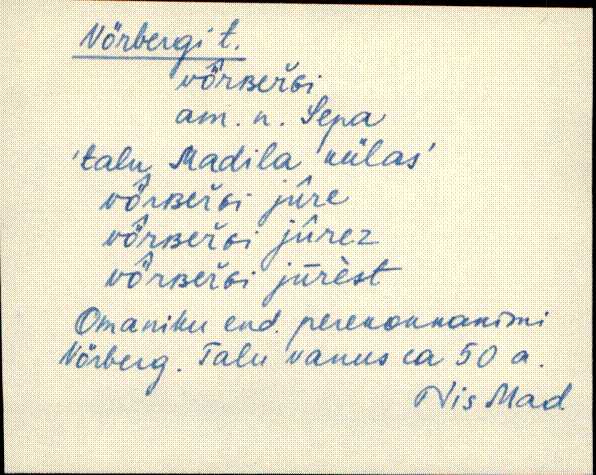 Nörbergi t.
nö̂rʙerɢi
am. n. Sepa
'talu Madila külas'
nö̂rʙerɢi jûre
nö̂rʙerɢi jûrez
nö̂rʙerɢi jūrèst
Omaniku end. perekonnanimi
Nörberg. Talu vanus ca 50 a.
Nis Mad